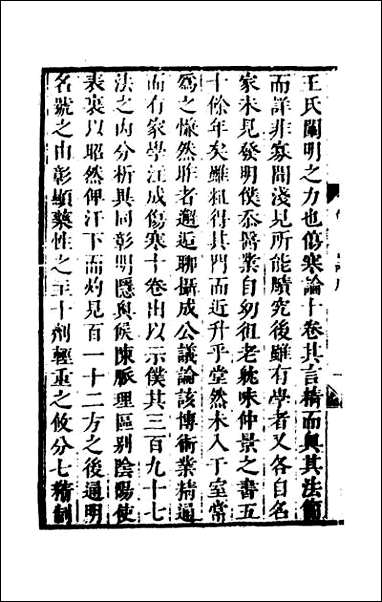 王氏闡明之力也傷寒論十卷其言精而奧其法簡
而詳非寡聞淺見所能賾究後雖有學者又各自名
家未見發明僕忝醫業自幼徂老耽味仲景之書五
十餘年矣雖粗得其門而近升乎堂然未入于室常
爲之慊然昨者邂逅聊攝成公議論該博術業精通
而有家學注成傷寒十卷出以示僕其三百九十七
法之內分析異同彰明隱奧調陳脈理區別陰陽使
表裏以昭然俾汗下而灼見百一十二方之後通明
名號之由彰顯藥性之主十劑輕重之攸分七精制